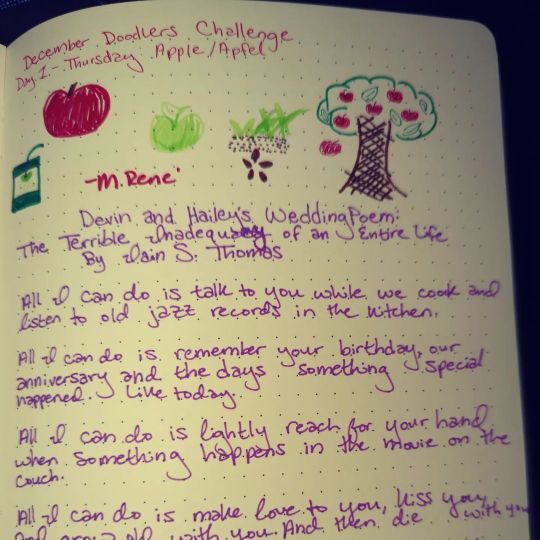 December Doodlers Challenge
Day 1. - Thursday Apple/Apfel
-M. Rene'
Devin and Hailey's Wedding Poem:
The Terrible Inadequacy of an Entire Life
By Iain S. Thomas
All I can do is talk to you while we cook and
listen to old jazz records in the kitchen.
All I can do is remember your birthday, our
anniversary and the days something special
happened. Like today.
All I can do is lightly reach for your hand
when something happens in the movie on the
couch.
All I can do is make love to you, kiss you,
and grow old with you. And then die with you